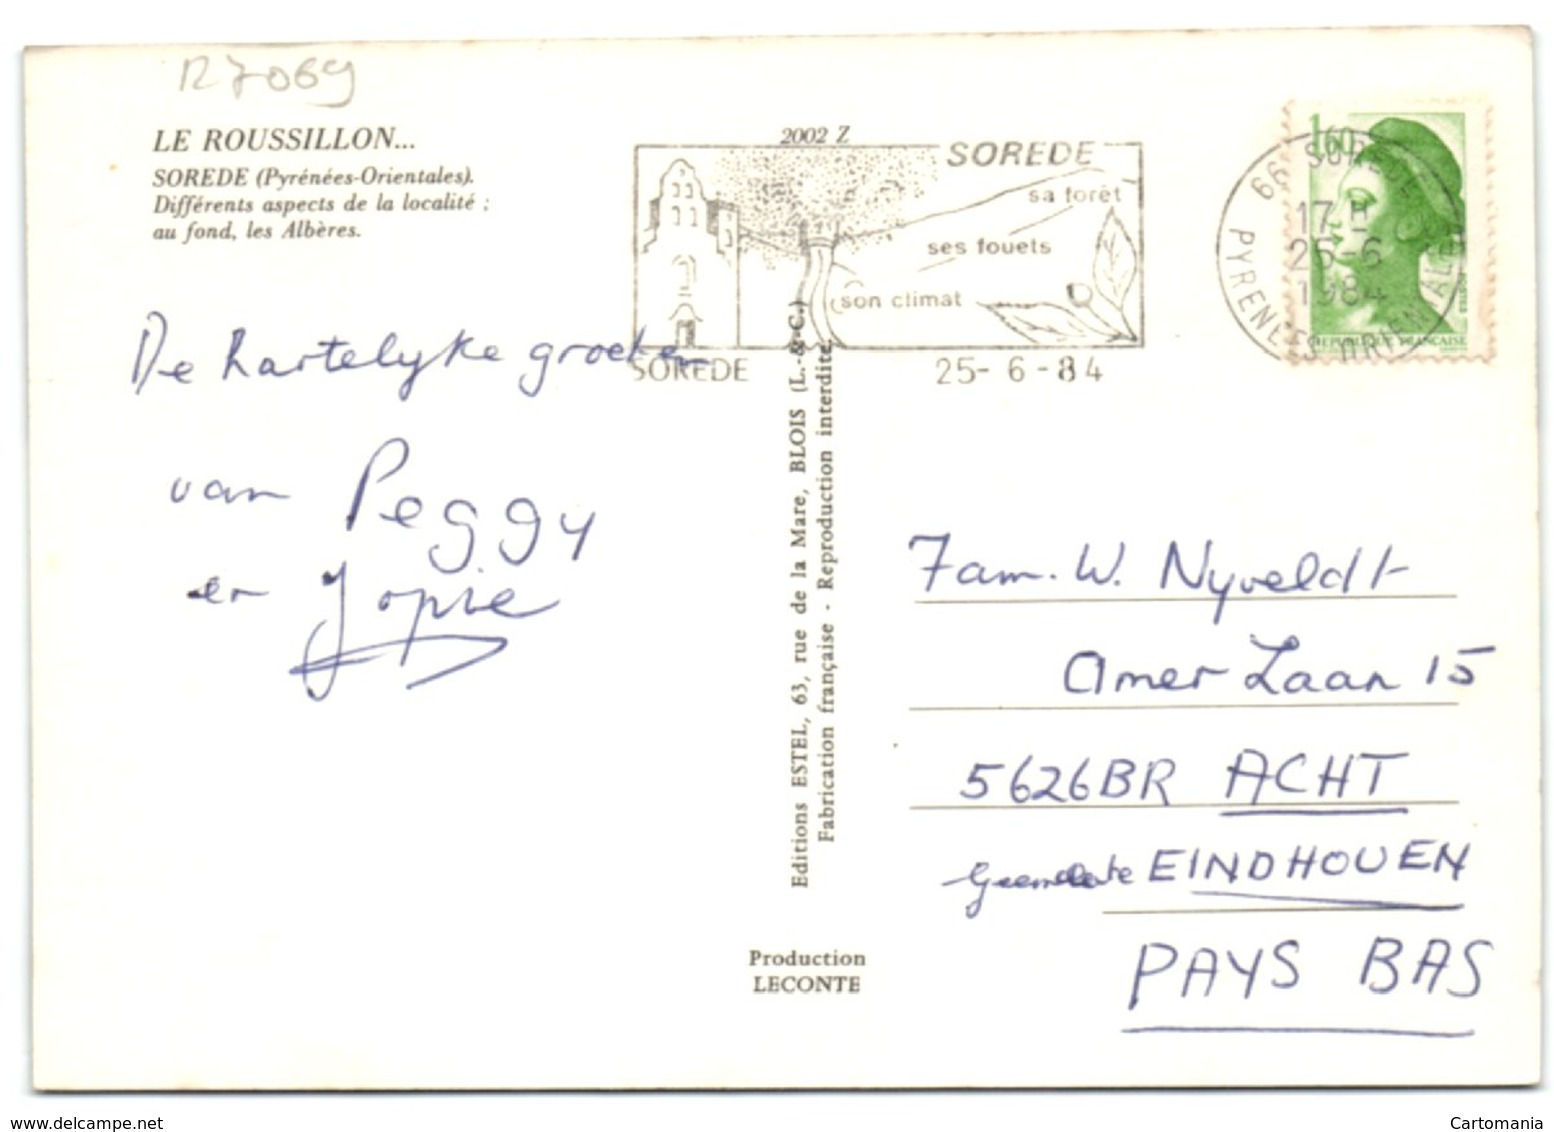 R7069
LE ROUSSILLON...
SOREDE (Pyrénées-Orientales).
Différents aspects de la localité :
au fond, les Albères.
De hartelyke groeten
van Peggy
en Jopie
2002 Z
SOREDE
sa forêt
ses fouets
son climat
SOREDE
25-6-84
66 SOREDE
17 H
25-6
1984
PYRENEES ORIENTALES
1,60
REPUBLIQUE FRANÇAISE
Editions ESTEL, 63, rue de la Mare, BLOIS (L.-&-C.)
Fabrication française - Reproduction interdite.
Production
LECONTE
Fam. W. Nyveldt
Amer Laan 15
5626BR ACHT
Gemeente EINDHOVEN
PAYS BAS
Cartomania